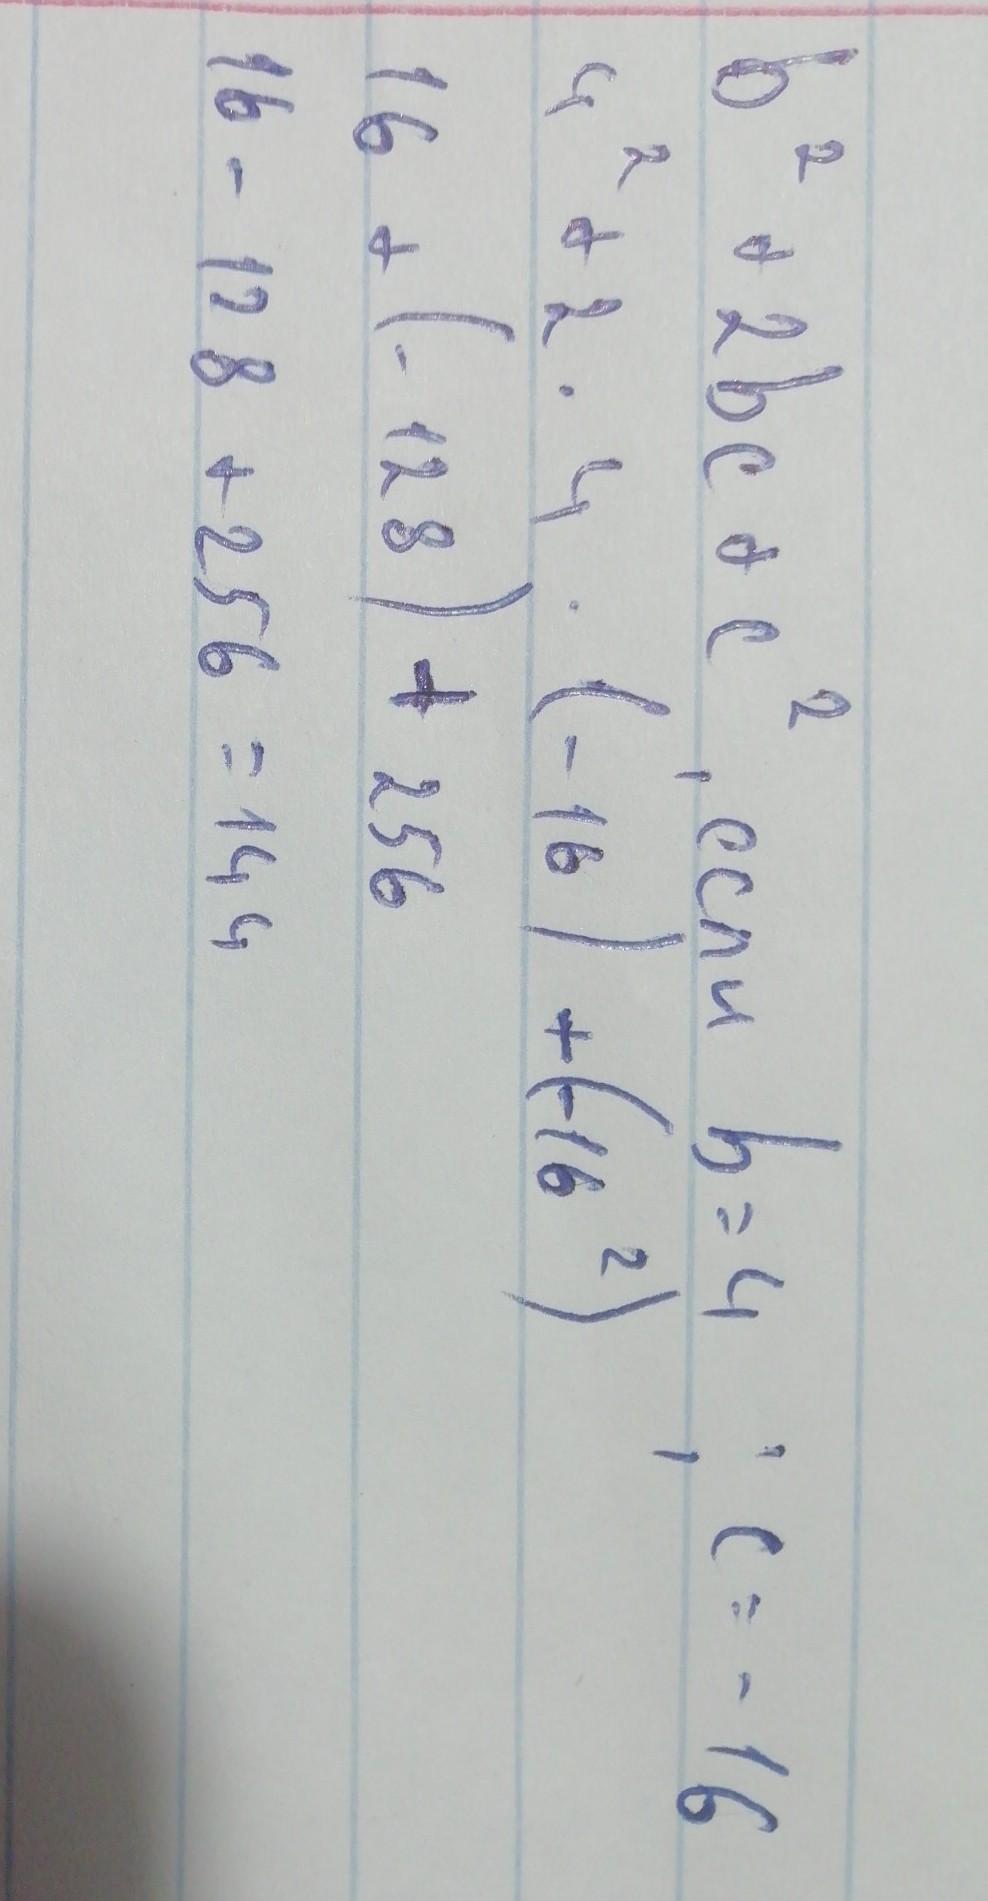 b² + 2bc + c², если b = 4; c = -16
4² + 2 · 4 · (-16) + (-16²)
16 + (-128) + 256
16 - 128 + 256 = 144